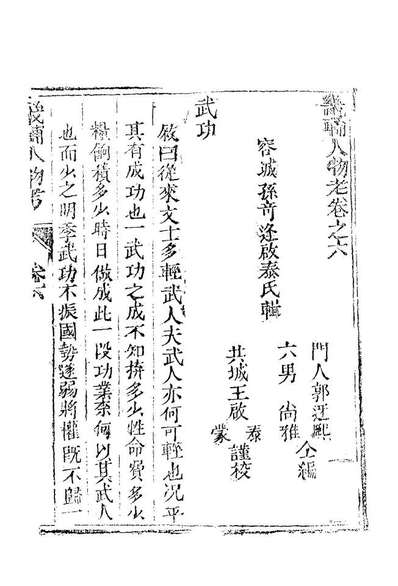 畿輔人物考卷之六
門人郭熙
六男尚雅
仝編
容城孫奇逢啟泰氏輯
共城王啟泰
蒙
謹校
武功
啟曰從來文士多輕武人夫武人亦何可輕也况乎
其有成功也一武功之成不知拚多少性命費多少
糧餉積多少時日做成此一段功業柰何以其武人
也而少之明季武功不振國勢遂弱將權既不歸一
畿輔人物考 卷六